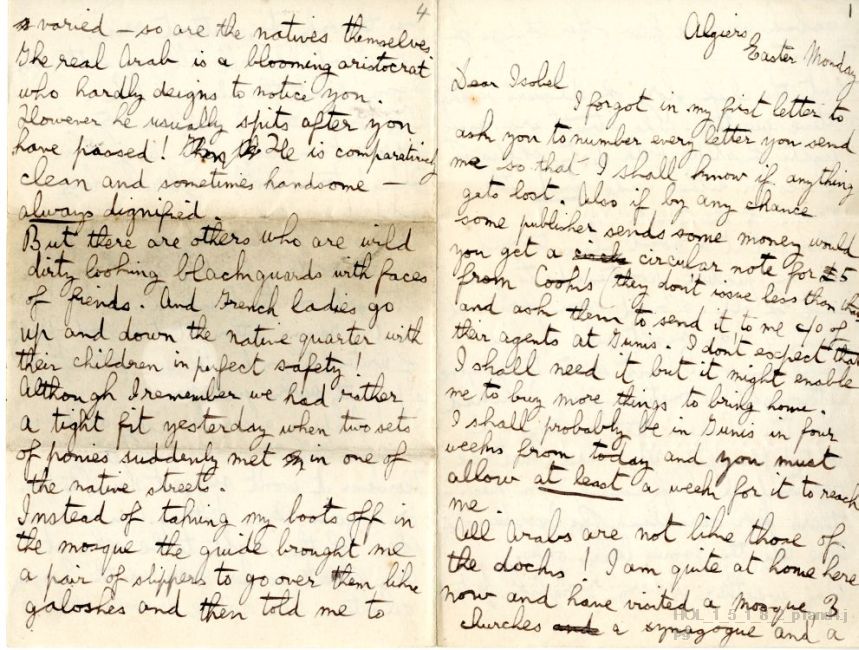 4
varied – so are the natives themselves.
The real Arab is a blooming aristocrat
who hardly deigns to notice you.
However he usually spits after you
have passed! He is comparatively
clean and sometimes handsome –
always dignified.
But there are others who are wild
dirty looking blackguards with faces
of fiends. And French ladies go
up and down the native quarter with
their children in perfect safety!
Although I remember we had rather
a tight fit yesterday when two sets
of ponies suddenly met in one of
the native streets.
Instead of taking my boots off in
the mosque the guide brought me
a pair of slippers to go over them like
galoshes and then told me to
1
Algiers
Easter Monday
Dear Isobel
I forgot in my first letter to
ask you to number every letter you send
me so that I shall know if anything
gets lost. Also if by any chance
some publisher sends some money would
you get a circular note for £5
from Cook's (they don't issue less than this
and ask them to send it to me c/o of
their agents at Tunis. I don't expect that
I shall need it but it might enable
me to buy more things to bring home.
I shall probably be in Tunis in four
weeks from today and you must
allow at least a week for it to reach
me.
All Arabs are not like those of
the docks! I am quite at home here
now and have visited a mosque 3
churches a synagogue and a